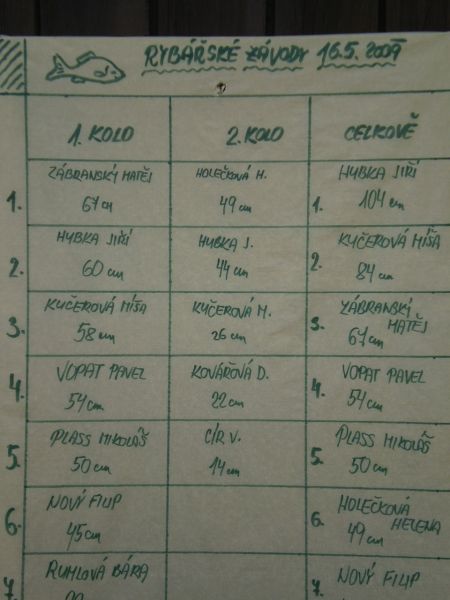 RYBÁŘSKÉ ZÁVODY 16.5.2009
1. KOLO 2. KOLO CELKOVĚ
1. ZÁBRANSKÝ MATĚJ HOLEČKOVÁ H. 1. HYBKA JIŘÍ
67 cm 49 cm 104 cm
2. HYBKA JIŘÍ HYBKA J. 2. KUČEROVÁ MÍŠA
60 cm 44 cm 84 cm
3. KUČEROVÁ MÍŠA KUČEROVÁ M. 3. ZÁBRANSKÝ MATĚJ
58 cm 26 cm 67 cm
4. VOPAT PAVEL KOVÁŘOVÁ D. 4. VOPAT PAVEL
54 cm 22 cm 54 cm
5. PLASS MIKOLÁŠ CÍR V. 5. PLASS MIKOLÁŠ
50 cm 14 cm 50 cm
6. NOVÝ FILIP 6. HOLEČKOVÁ HELENA
45 cm 49 cm
7. RUMLOVÁ BÁRA 7. NOVÝ FILIP